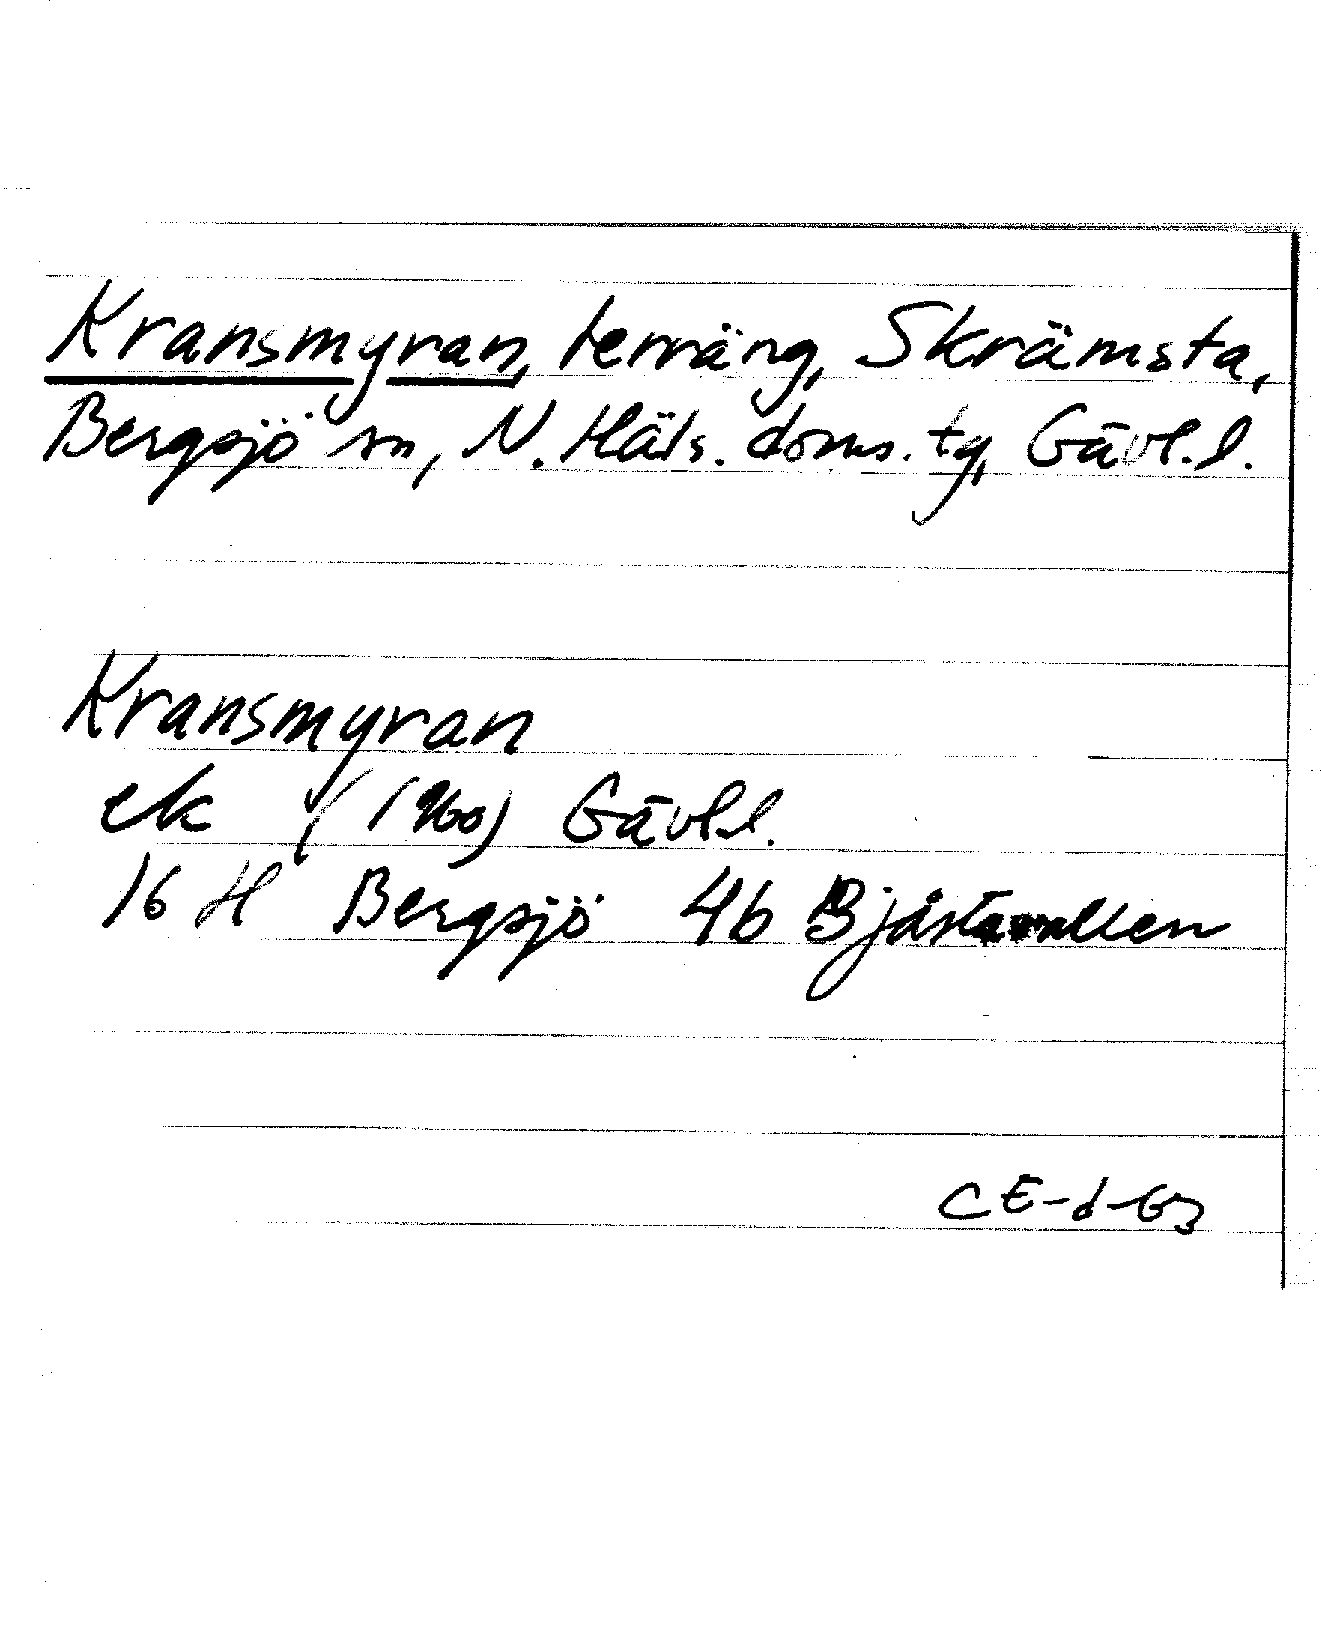 Kransmyran, terräng, Skrämsta,
Bergsjö sn, N. Häls. doms. tg, Gävl.l.
Kransmyran
ek (1960) Gävl.l.
16 H Bergsjö 4b Bjåstavallen
CE-d-G3